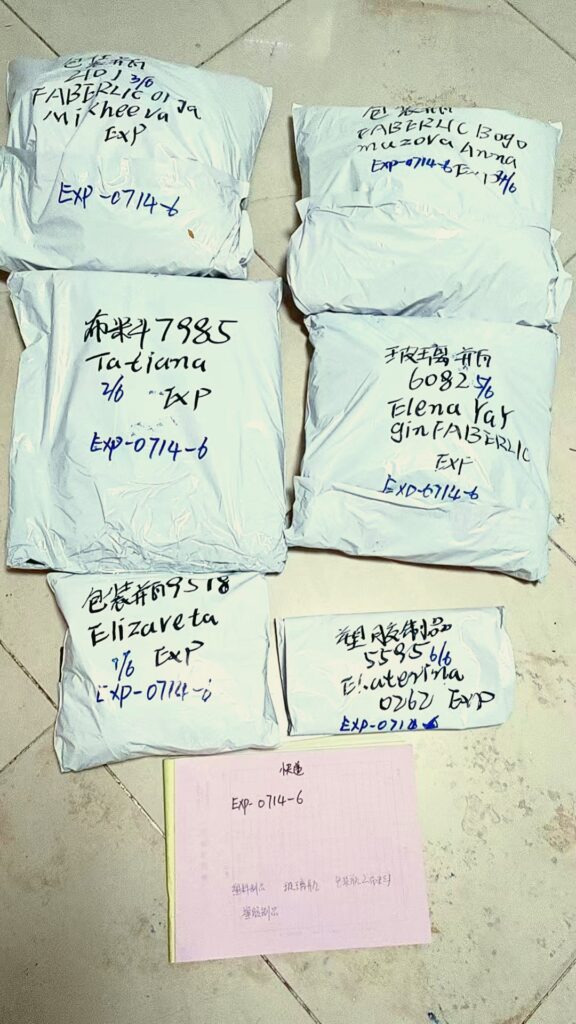 包装瓶
2101 3/6
FABERLIC Olga
Mikheeva
EXP
EXP-0714-6
包装瓶
FABERLIC Bogo
muzova Anna
EXP-0714-6 4/6
布料 7985
Tatiana
2/6 EXP
EXP-0714-6
玻璃瓶
6082 5/6
Elena Yar
gin FABERLIC
EXP
EXP-0714-6
包装瓶 9518
Elizaveta
1/6 EXP
EXP-0714-6
塑胶制品
5595 6/6
Ekaterina
0262 EXP
EXP-0714-6
快递
EXP-0714-6
塑料制品 玻璃瓶
塑胶制品